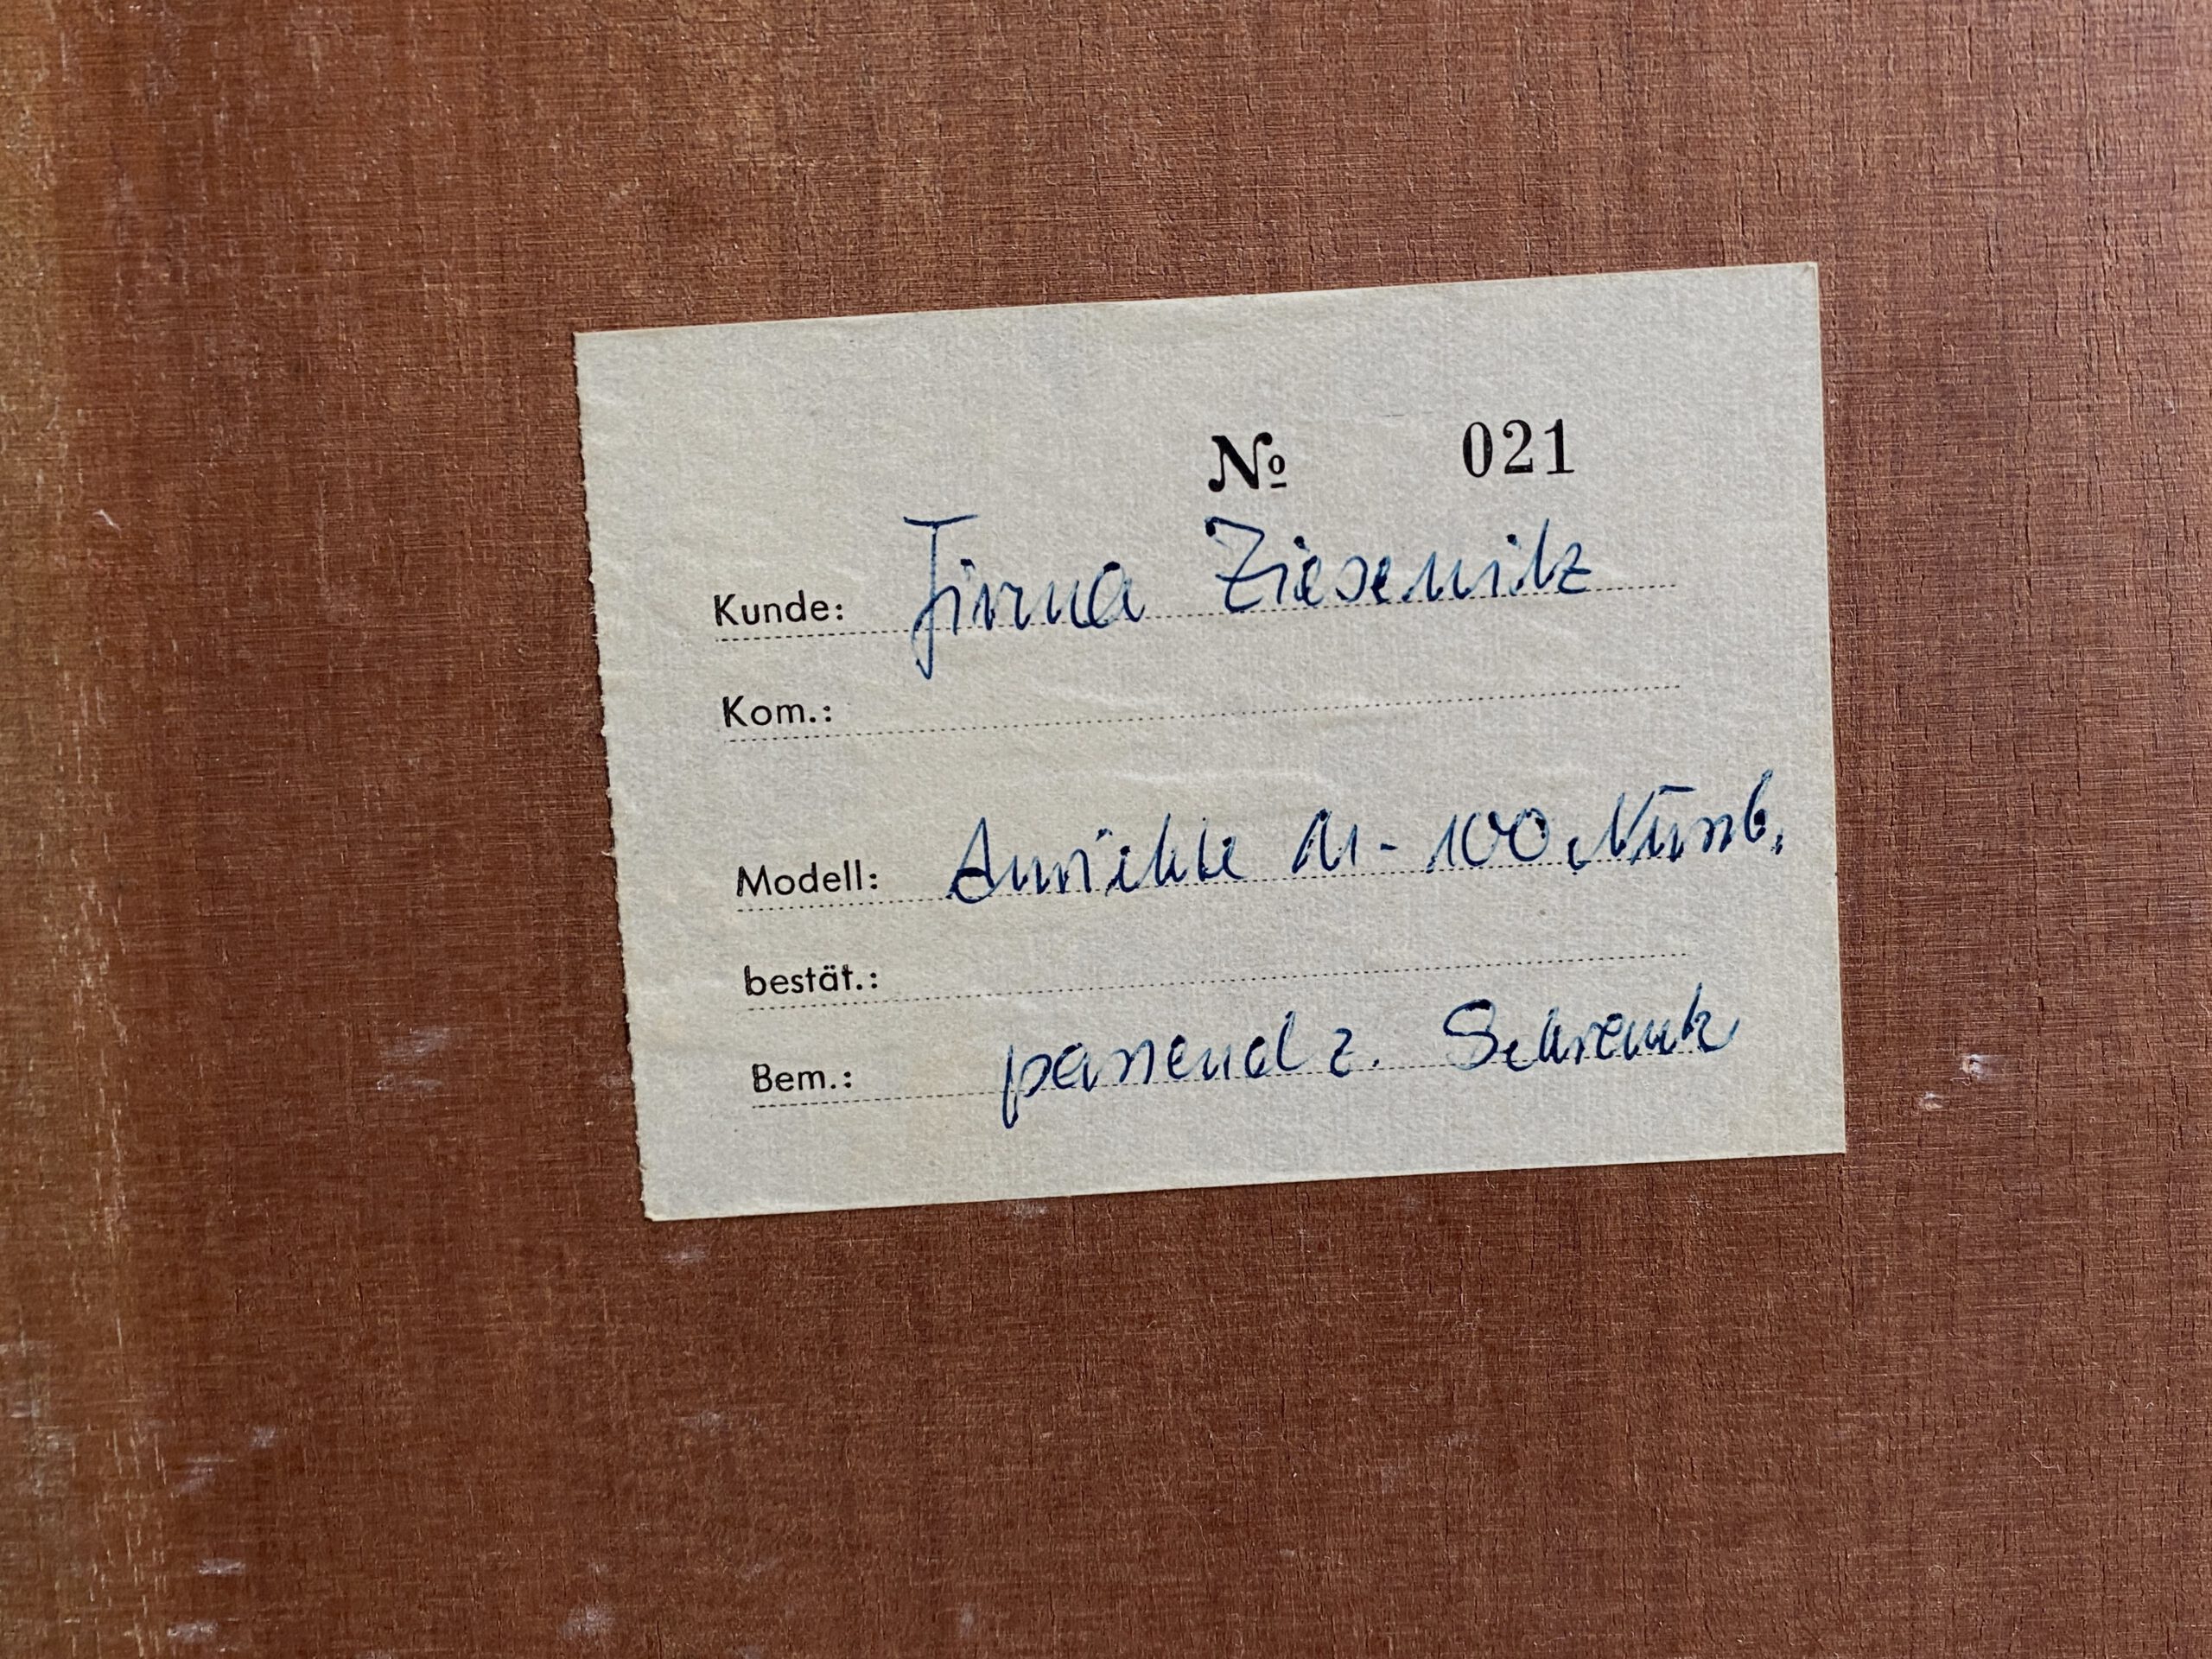 № 021
Kunde: Firma Ziesenitz
Kom.:
Modell: Anrichte M-100 Nürnb.
bestät.:
Bem.: passend z. Schrank